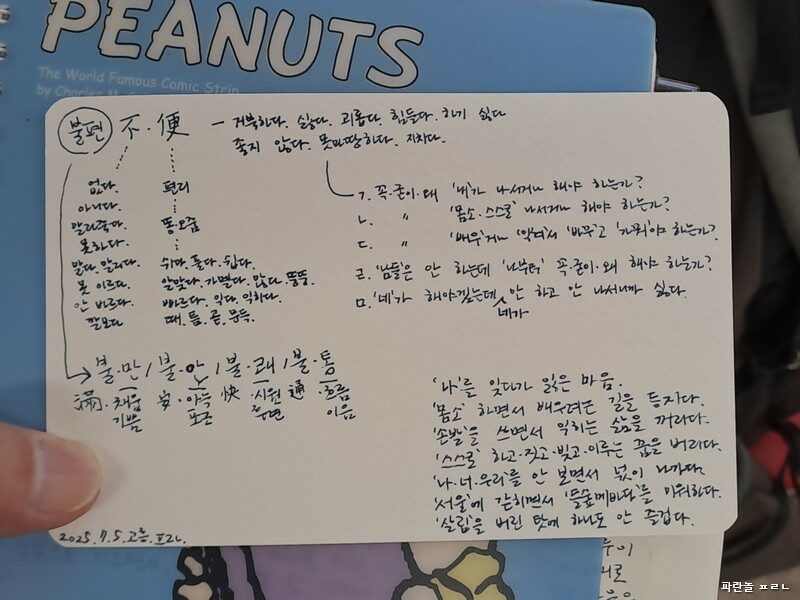 PEANUTS
The World Famous Comic Strip
by Charles M.
불편 不·便 - 거북하다. 싫다. 괴롭다. 힘들다. 하기 싫다
좋지 않다. 못마땅하다. 지치다.
없다. 편리
아니다.
말리죽다. 똥오줌
못하다.
말다. 말리다. 쉬다. 돌다. 쉽다.
못 이르다. 알맞다. 가볍다. 많다. 뚱뚱.
안 바르다. 빠르다. 익다. 익히다.
잘못되다 때. 틈. 곧. 문득.
ㄱ. 꼭·굳이·왜 '내'가 나서거나 해야 하는가?
ㄴ. 〃 '몸소·스스로' 나서거나 해야 하는가?
ㄷ. 〃 '배우'거나 '익혀서 '바꾸'고 '가꿔'야 하는가?
ㄹ. '남들은 안 하는데 '나부터' 꼭·굳이·왜 해야 하는가?
ㅁ. '네'가 해야겠는데 안 하고 안 나서니까 싫다.
네가
불·만 / 불·안 / 불·쾌 / 불·통
滿·채움 安·아늑 快·시원 通·흐름
기쁨 포근 후련 이음
'나'를 잊다가 잃은 마음.
'몸소' 하면서 배우려는 길을 등지다.
'손발'을 쓰면서 익히는 삶을 꺼리다.
'스스로' 하고·짓고·빚고·이루는 꿈을 버리다.
'나·너·우리'를 안 보면서 넋이 나가다.
'서울'에 갇히면서 '들숲메바다'를 미워하다.
'살림'을 버린 탓에 하나도 안 즐겁다.
2025.7.5. 고흥. ㅍㄹㄴ.
파란놀 ㅍㄹㄴ